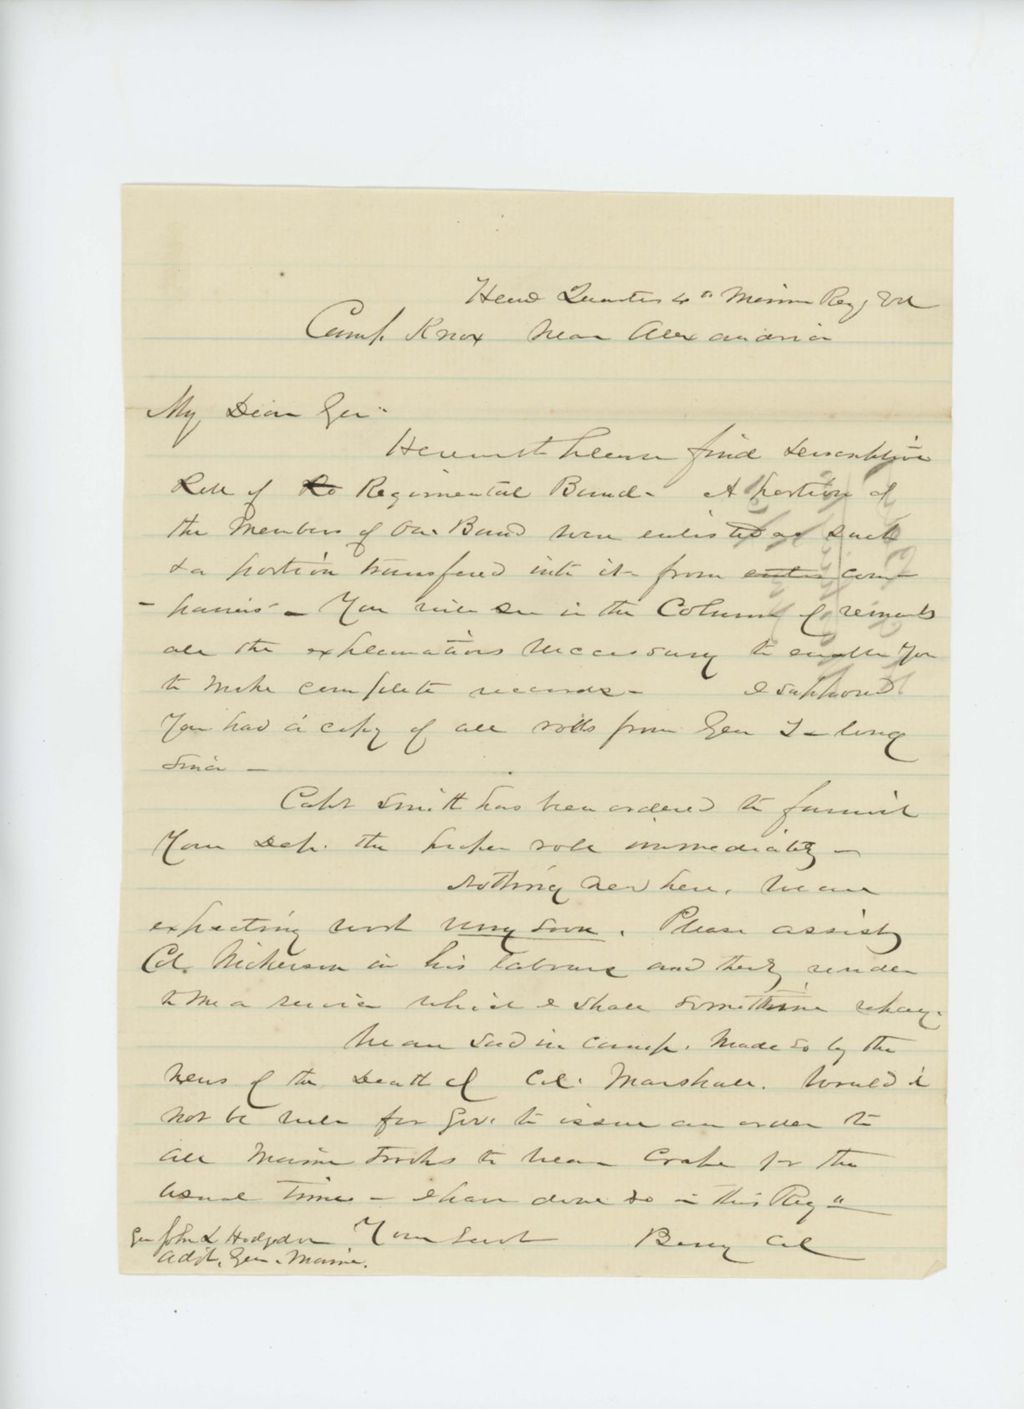 Head Quarters 4th Maine Reg. Vol
Camp Knox near Alexandria
My Dear Gen.
Herewith please find descriptive
Roll of Regimental Band - A portion of
the Members of Our Band were enlisted as such
& a portion transfered into it - from com-
- panies - You will see in the Column of remarks
all the explanations Neccessary to enable You
to Make complete records - I supposed
You had a copy of all rolls from Gen T - long
since -
Capt Smith has been ordered to furnish
Your Dep. the proper rolls immediately -
Nothing new here. We are
expecting work very soon. Please assist
Col. Nickerson in his labours and thereby render
to Me a service which I shall sometime repay.
We are Sad in Camp. Made so by the
News of the Death of Col. Marshall. Would it
Not be well for Gov. to issue an order to
all Maine Troops to wear Crape for the
usual Time - I have done so in this Reg"
Gen John L Hodgdon Your Servt Berry Col
Adjt. Gen. Maine.